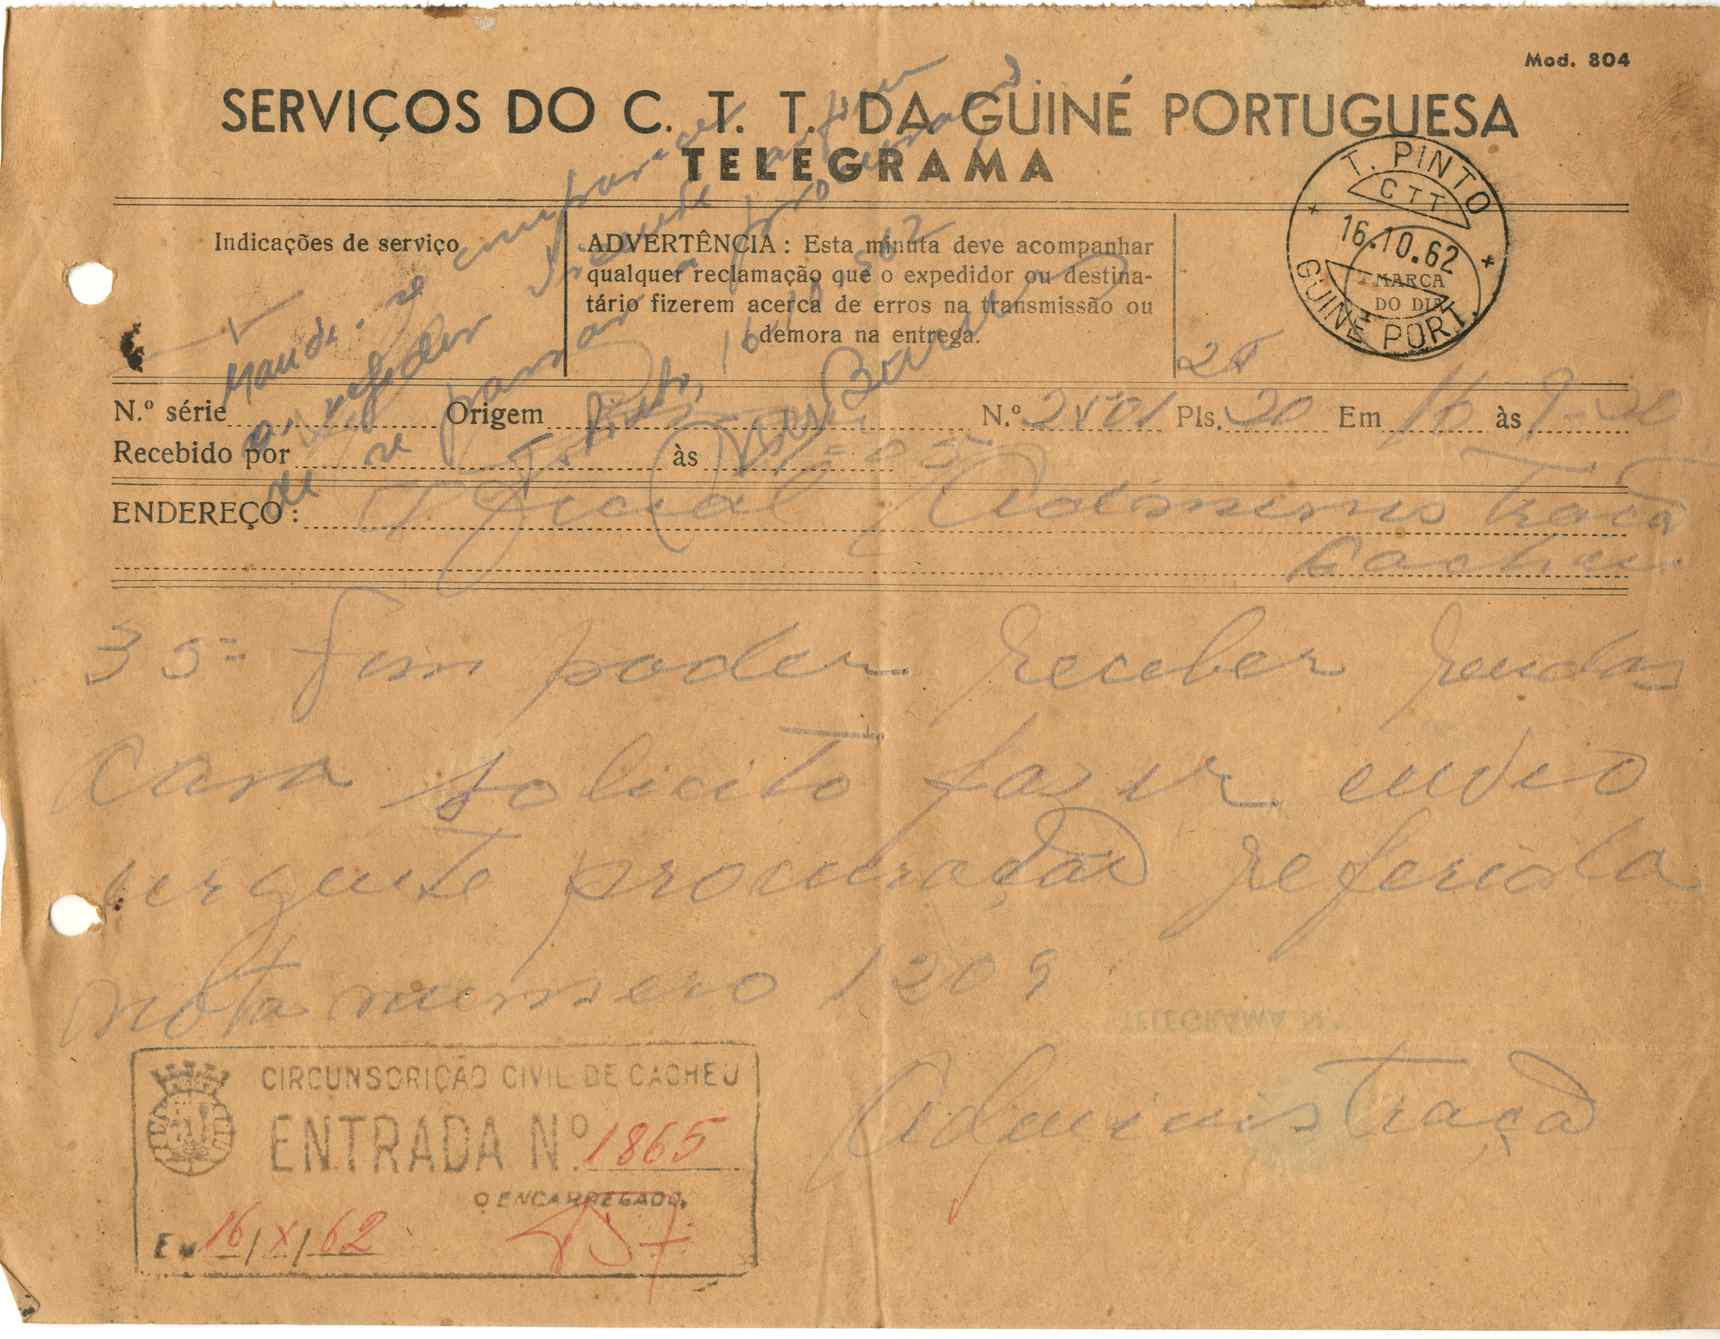 Mod. 804
SERVIÇOS DO C. T. T. DA GUINÉ PORTUGUESA
TELEGRAMA
T. PINTO
CTT
16.10.62
MARCA
DO DIA
GUINÉ PORT.
Indicações de serviço
ADVERTÊNCIA : Esta minuta deve acompanhar
qualquer reclamação que o expedidor ou destina-
tário fizerem acerca de erros na transmissão ou
demora na entrega.
Mande-se comparecer
o vendedor
de se passar a procuração
16
N.º série Origem N.º Pls. 20 Em 16 às 9-20
Recebido por às
ENDEREÇO: Oficial Administração
Cacheu
35 = fim poder receber rendas
casa solicito fazer envio
urgente procuração referida
nota numero 1209
Administração
CIRCUNSCRIÇÃO CIVIL DE CACHEU
ENTRADA N.º 1865
O ENCARREGADO,
EM 16/X/62
TELEGRAMA N.